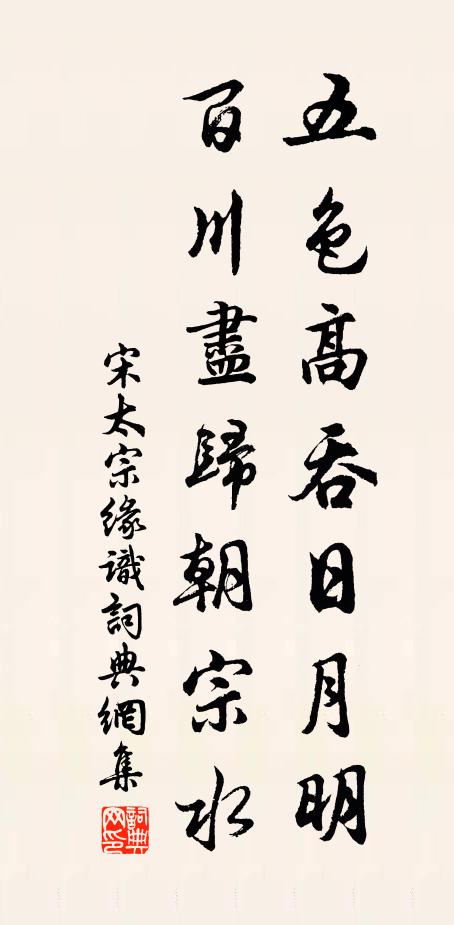 五色高吞日月明
百川盡歸朝宗水
宋太宗緣識詞典網集
詞典網印